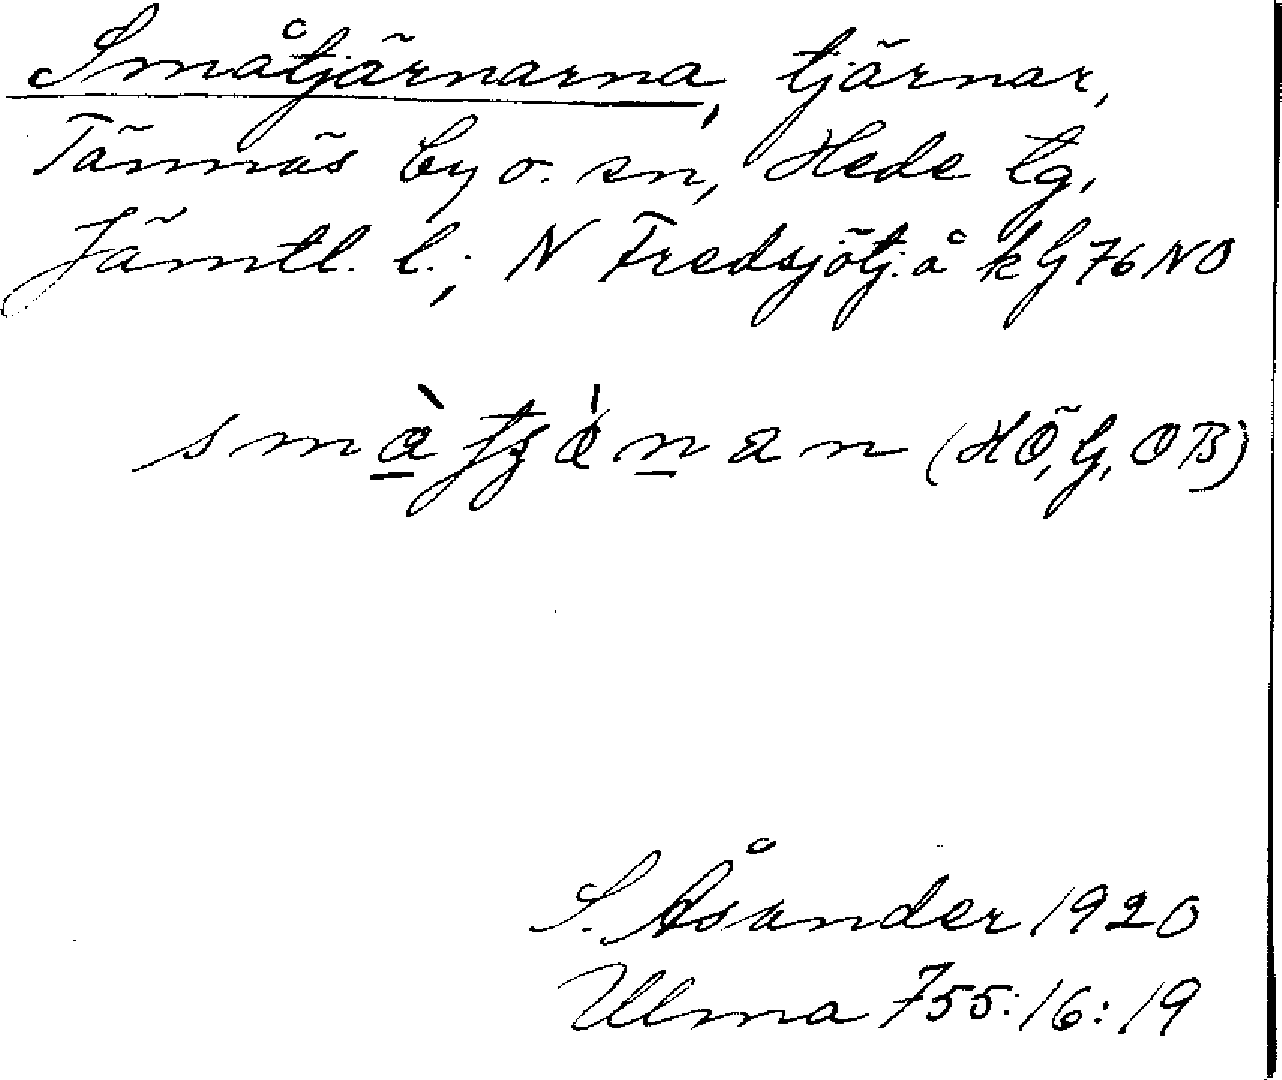 Småtjärnarna, tjärnar,
Tännäs by o. sn, Hede tg,
Jämtl. l.; N Fredsjötj.å kG 76 NO
(HÖ, G, OB)
S. Åsander 1920
Ulma 755:16:19